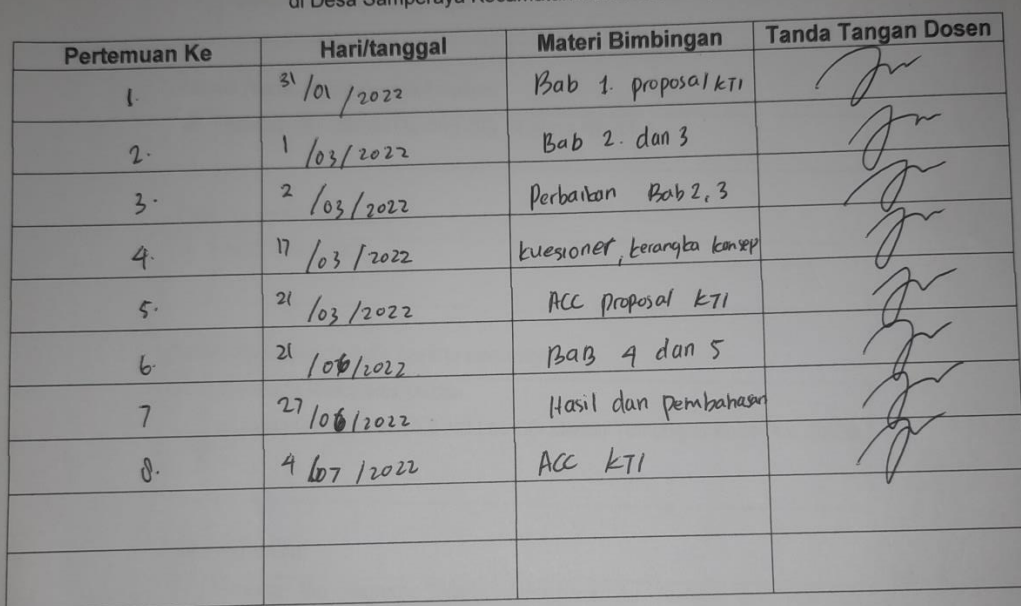 di Desa
Pertemuan Ke Hari/tanggal Materi Bimbingan Tanda Tangan Dosen
1. 31/01/2022 Bab 1. proposal KTI
2. 1/03/2022 Bab 2. dan 3
3. 2/03/2022 Perbaikan Bab 2, 3
4. 17/03/2022 kuesioner, kerangka konsep
5. 21/03/2022 ACC proposal KTI
6. 21/06/2022 BAB 4 dan 5
7 27/06/2022 Hasil dan pembahasan
8. 4/07/2022 ACC KTI